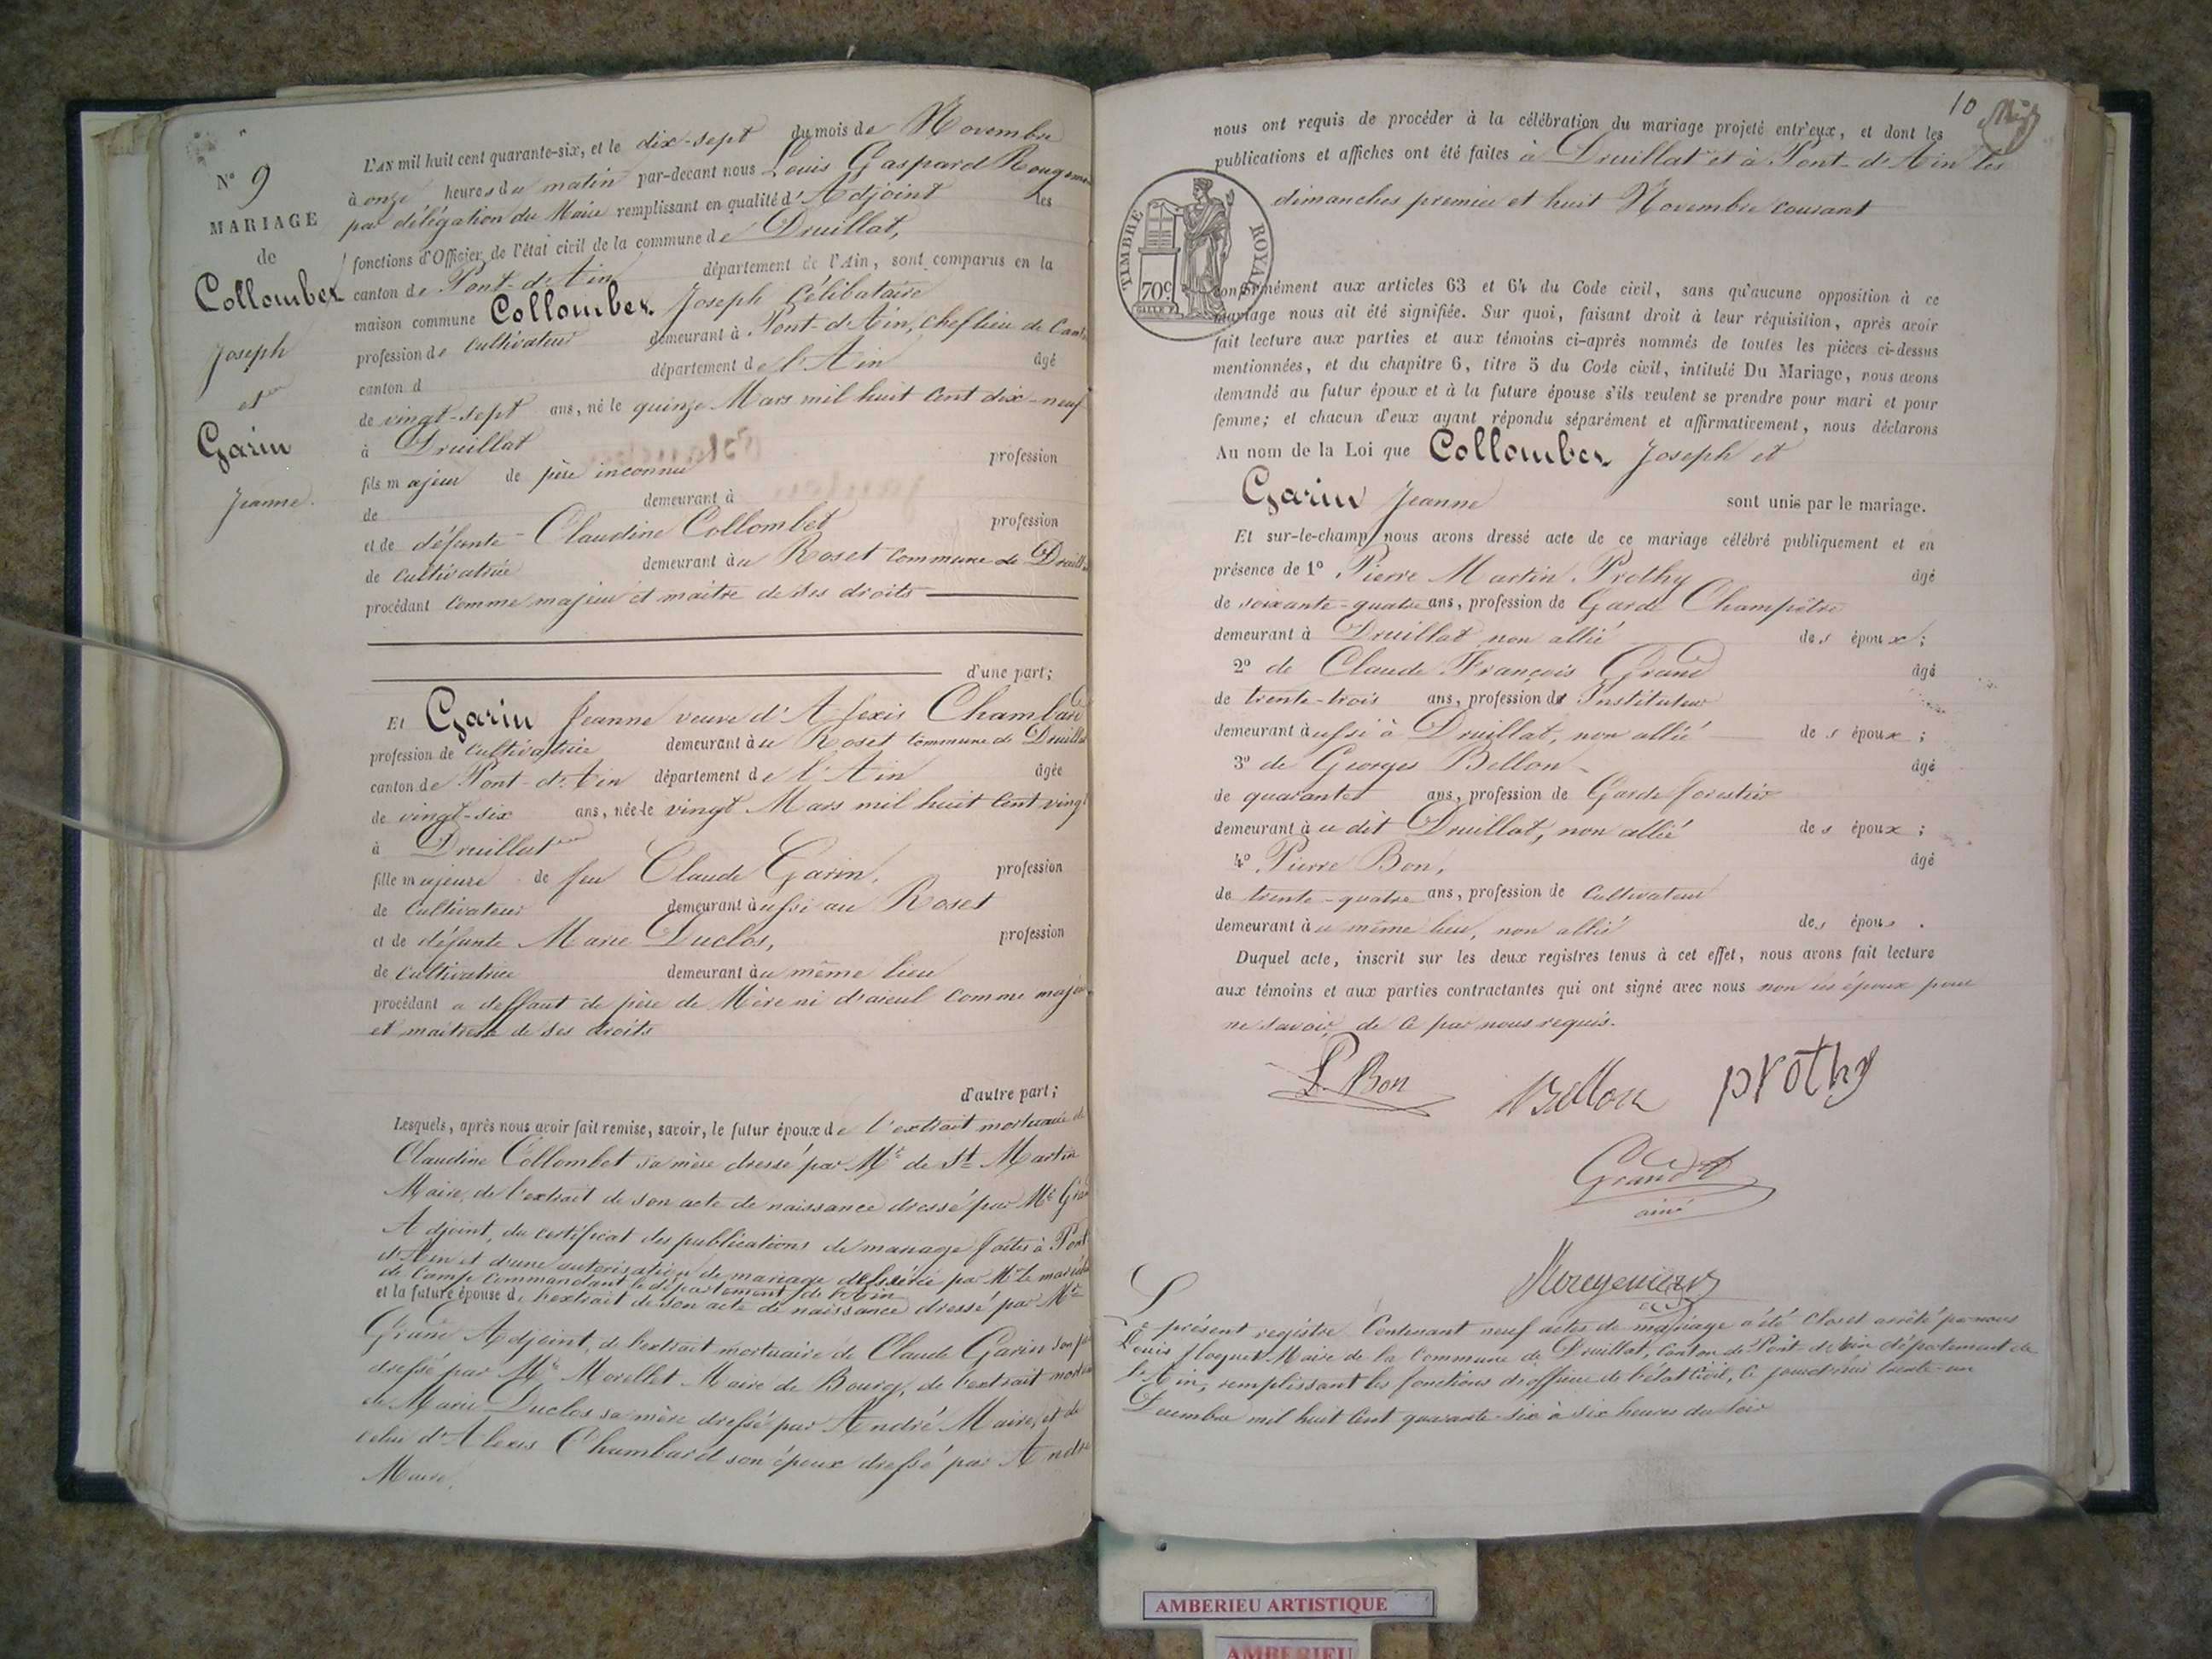 N° 9
MARIAGE
de
Collombet
Joseph
et
Garin
Jeanne.
L'AN mil huit cent quarante-six, et le dix-sept du mois de Novembre
à onze heures du matin par-devant nous Louis Gaspard
par délégation du Maire remplissant en qualité d'Adjoint les
fonctions d'Officier de l'état civil de la commune de Druillat,
canton de Pont-d'Ain département de l'Ain, sont comparus en la
maison commune Collombet Joseph Célibataire
profession de cultivateur demeurant à Pont-d'Ain, chef lieu de
canton d département de l'Ain âgé
de vingt-sept ans, né le quinze Mars mil huit cent dix-neuf
à Druillat
fils majeur de père inconnu profession
de demeurant à
et de défunte Claudine Collombet profession
de cultivatrice demeurant au Roset commune de
procédant comme majeur et maître de ses droits
d'une part;
Et Garin Jeanne veuve d'Alexis
profession de cultivatrice demeurant au Roset commune de
canton de Pont-d'Ain département de l'Ain âgée
de vingt-six ans, née le vingt Mars mil huit cent vingt
à Druillat
fille majeure de feu Claude Garin, profession
de cultivateur demeurant aussi au Roset
et de défunte Marie Duclos, profession
de cultivatrice demeurant au même lieu
procédant a deffaut de père de Mère ni d'aieul comme
et maitresse de ses droits
d'autre part;
Lesquels, après nous avoir fait remise, savoir, le futur époux de l'extrait mortuaire de
Claudine Collombet sa mère dressé par Mr de St Martin
Maire, de l'extrait de son acte de naissance dressé par Mr
Adjoint, du certificat des publications de mariage faites à Pont
d'Ain et d'une autorisation de mariage délivrée par Mr le
de Camp commandant le département de l'Ain
et la future épouse de l'extrait de son acte de naissance dressé par Mr
Grand Adjoint, de l'extrait mortuaire de Claude Garin son
dressé par Mr Morellet Maire de Bourg, de l'extrait
de Marie Duclos sa mère dressé par André Maire, et de
celui d'Alexis Chambard son époux dressé par
Maire.
10
nous ont requis de procéder à la célébration du mariage projeté entr'eux, et dont les
publications et affiches ont été faites à Druillat et à Pont-d'Ain les
dimanches premier et huit Novembre courant
TIMBRE ROYAL
70c
conformément aux articles 63 et 64 du Code civil, sans qu'aucune opposition à ce
mariage nous ait été signifiée. Sur quoi, faisant droit à leur réquisition, après avoir
fait lecture aux parties et aux témoins ci-après nommés de toutes les pièces ci-dessus
mentionnées, et du chapitre 6, titre 5 du Code civil, intitulé Du Mariage, nous avons
demandé au futur époux et à la future épouse s'ils veulent se prendre pour mari et pour
femme; et chacun d'eux ayant répondu séparément et affirmativement, nous déclarons
Au nom de la Loi que Collombet Joseph et
Garin Jeanne sont unis par le mariage.
Et sur-le-champ nous avons dressé acte de ce mariage célébré publiquement et en
présence de 1° Pierre Martin Prothy âgé
de soixante-quatre ans, profession de Garde Champêtre
demeurant à Druillat non allié des époux;
2° de Claude François Grand âgé
de trente-trois ans, profession de Instituteur
demeurant aussi à Druillat, non allié des époux;
3° de Georges Bellon âgé
de quarante ans, profession de Garde forestier
demeurant au dit Druillat, non allié des époux;
4° Pierre Bon, âgé
de trente-quatre ans, profession de cultivateur
demeurant au même lieu, non allié des époux.
Duquel acte, inscrit sur les deux registres tenus à cet effet, nous avons fait lecture
aux témoins et aux parties contractantes qui ont signé avec nous non les époux pour
ne savoir, de ce par nous requis.
P. Bon Bellon prothy
Grand
ainé
Le présent registre Contenant neuf actes de mariage a été clos et arrêté par nous
Louis Maire de la Commune de Druillat, Canton de Pont d'Ain département de
l'Ain, remplissant les fonctions d'officier de l'état civil, ce jourd'hui trente-un
Decembre mil huit cent quarante-six à six heures du soir
AMBERIEU ARTISTIQUE
AMBERIEU